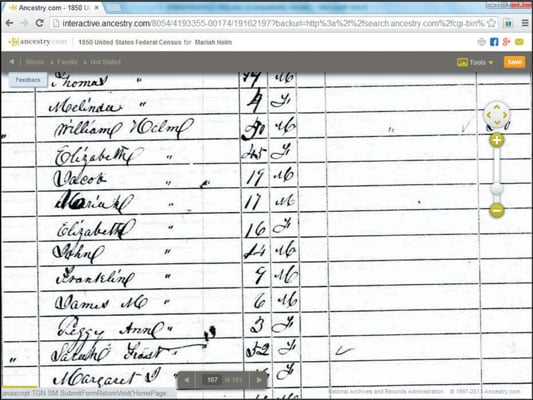 Ancestry.com - 1850 U
interactive.ancestry.com/8054/4193355-00174/19162197?backurl=http%3a%2f%2fsearch.ancestry.com%2fcgi-bin%
ancestry.com 1850 United States Federal Census for Mariah Helm
Illinois Fayette Not Stated Tools Save
Feedback
Thomas 14 M
Melinda " 4 F
William Helm 50 M "
Elizabeth " 45 F
Jacob " " 19 M
Mariah " 17 M
Elizabeth " 16 F
John " 14 M
Franklin " 9 M
James M " 6 M
Peggy Ann " 3 F
" Frost 52 F
Margaret " F
167 of 193
javascript:TGN.SM.SubmitFormReturnVoid('HomePage
National Archives and Records Administration © 1997-2013 Ancestry.com